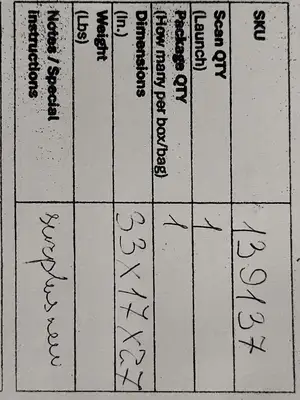 SKU
139137
Scan QTY
(Launch)
1
Package QTY
(How many per box/bag)
1
Dimensions
(In.)
33x17x27
Weight
(Lbs)
Notes / Special
instructions
surplus new